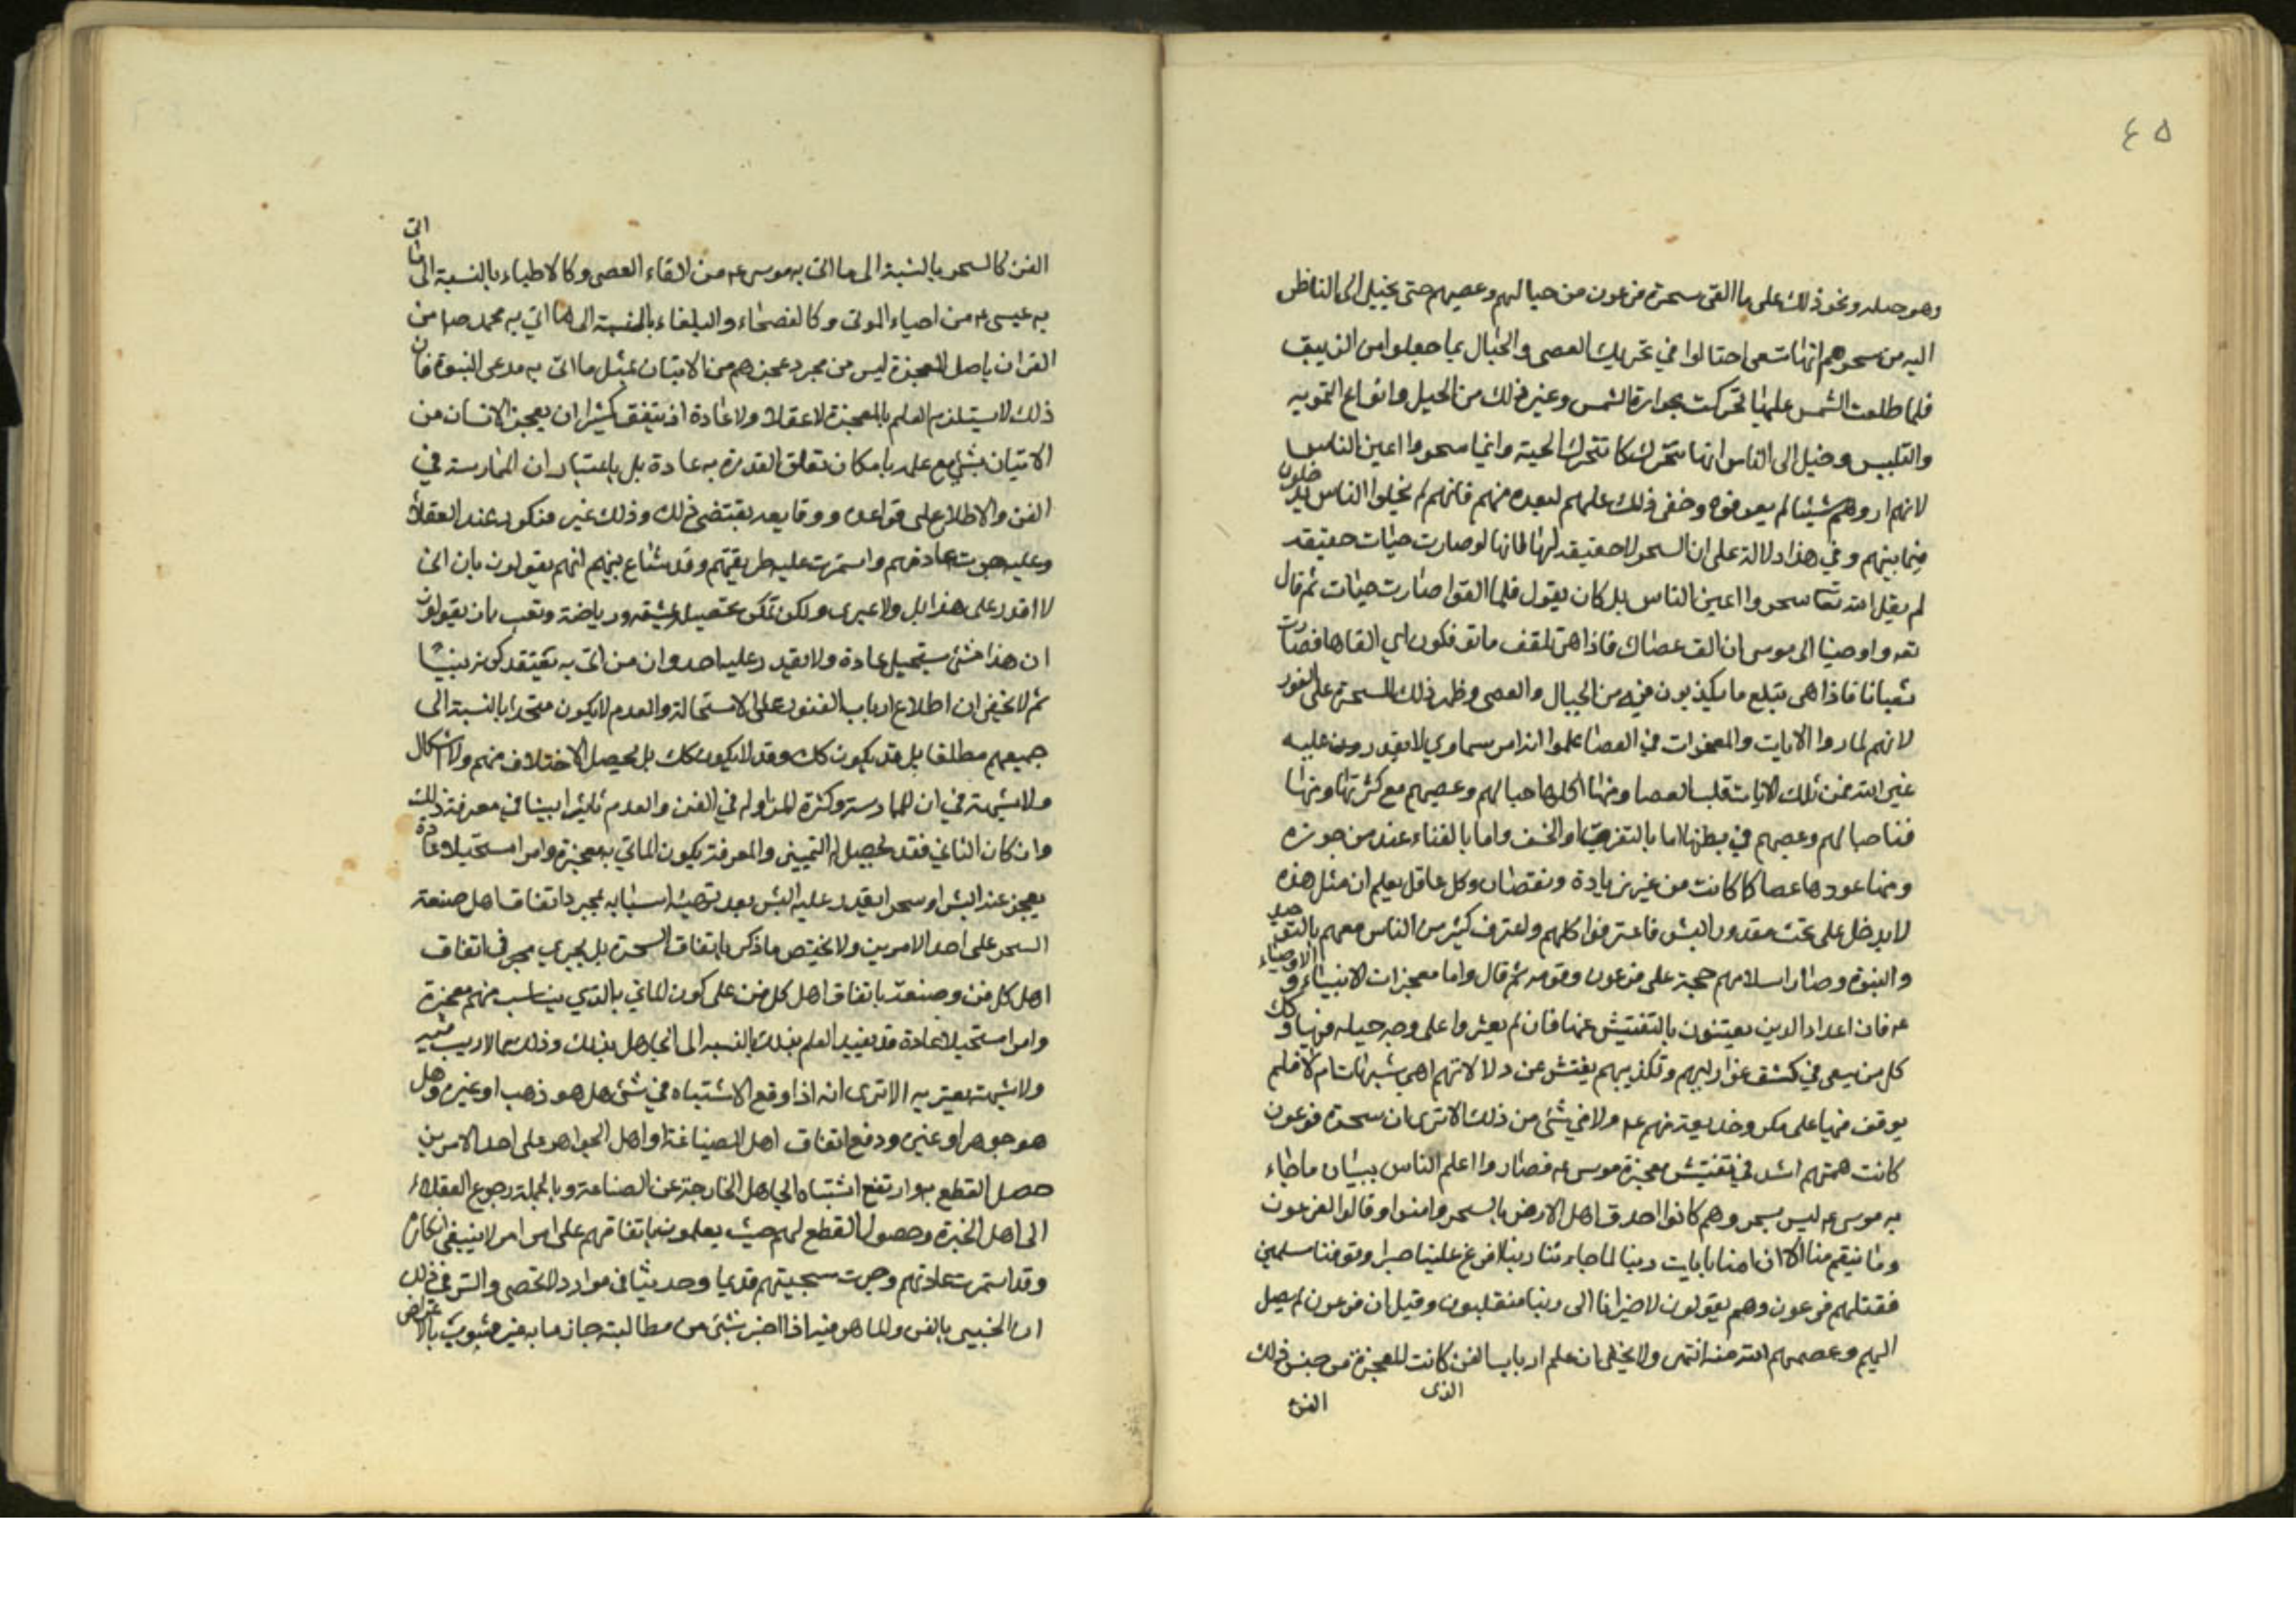 ٤٥
وهو حيله ونحو ذلك على ما القى سحرة فرعون من حبالهم وعصيهم حتى يخيل الى الناظر
اليه من سحرهم انها تسعى احتالوا في تحريك العصى والحبال بما جعلوا من الزيبق
فلما طلعت الشمس عليها تحركت بحرارة الشمس وغير ذلك من الحيل وانواع التمويه
والتلبيس وخيل الى الناس انها تتحرك كما تتحرك الحية وانما سحروا اعين الناس
لانهم اروهم شيئا لم يعرفوه وخفى ذلك عليهم لبعده منهم فانهم لم يخلوا الناس يدخلون
فيما بينهم وفي هذا دلالة على ان السحر لا حقيقه لها لانها لو صارت حيات حقيقه
لم يقل الله تعا سحروا اعين الناس بل كان يقول فلما القوا صارت حيات ثم قال
تعه واوحينا الى موسى ان الق عصاك فاذا هي تلقف ما يافكون اي القاها فصارت
ثعبانا فاذا هي تبتلع ما يكذبون فيه من الحبال والعصى وظهر ذلك للسحرة على الفور
لانهم لما راوا الايات والمعجزات في العصا علموا انه امر سماوي لا يقدر عليه
غير الله فمن تلك الايات قلب العصا ومنها اكلها حبالهم وعصيهم مع كثرتها ومنها
فنا حبالهم وعصيهم في بطنها اما بالتفرق او الخسف واما بالفناء عند من جوزه
ومنها عودها عصا كما كانت من غير زيادة ونقصان وكل عاقل يعلم ان مثل هذه
لا يدخل على تحت مقدور البشر فاعترفوا كلهم واعترف كثير من الناس معهم بالتوحيد
والنبوة وصار اسلامهم حجة على فرعون وقومه ثم قال واما معجزات الانبياء والاوصياء
عه فان اعداد الدين يعتنون بالتفتيش عنها فان لم يعثروا على وجه حيله فيها وكك
كل من سعى في كشف عوارتهم وتكذيبهم يفتش عن دلالاتهم اهي شبهات ام لا فلم
يوقف منها على مكر وخديعة منهم عه ولا في شئ من ذلك الا ترى ان سحرة فرعون
كانت همتهم اشد في تفتيش معجزة موسى عه فصاروا اعلم الناس ببيان ما جاء
به موسى عه ليس بسحر وهم كانوا احذق اهل الارض بالسحر وامنوا وقالوا لفرعون
وما تنقم منا الا ان امنا بايات ربنا لما جاءتنا ربنا افرغ علينا صبرا وتوفنا مسلمين
فقتلهم فرعون وهم يقولون لا ضير انا الى ربنا منقلبون وقيل ان فرعون لم يصل
اليهم وعصمهم الله منه انتهى ولا يخفى ان علم ارباب الفن كانت المعجزة من جنس ذلك
الذى
الفن
الفن كالسحر بالنسبة الى ما اتى به موسى عه من القاء العصى وكالاطباء بالنسبة الى ما اتى
به عيسى عه من احياء الموتى وكالفصحاء والبلغاء بالنسبة الى ما اتى به محمد ص من
القران باصل المعجزة ليس من مجرد عجزهم من الاتيان بمثل ما اتى به مدعى النبوة فان
ذلك لا يستلزم العلم بالمعجزة لا عقلا ولا عادة اذ يتفق كثيرا ان يعجز الانسان من
الاتيان بشئ مع علمه بامكان تعلق القدرة به عادة بل باعتبار ان الممارسة في
الفن والاطلاع على قواعده ووقايعه يقتضى ذلك وذلك غير منكور عند العقلاء
وعليه جرت عادتهم واستمرت عليه طريقتهم وقد شاع بينهم انهم يقولون بان انى
لا اقدر على هذا بل ولا غيرى ولكن يمكن تحصيله بمشيقه ورياضة وتعب بان يقولون
ان هذا شئ مستحيل عادة ولا يقدر عليه احد وان من اتى به يعتقد كونه نبيا
ثم لا يخفى ان اطلاع ارباب الفنون على الاستحالة والعدم لا يكون متحدا بالنسبة الى
جميعهم مطلقا بل قد يكون كك وقد لا يكون كك بل يحصل الاختلاف منهم ولا اشكال
ولا شبهة في ان للممارسة وكثرة المزاوله في الفن والعدم تاثيرا بينا في معرفة ذلك
وان كان الثاني فقد يحصل التمييز والمعرفة بكون الماتي به معجزة وامرا مستحيلا عادة
يعجز عنه البشر او سحر يقدر عليه البشر بعد تهيئة اسبابه بمجرد اتفاق اهل صنعة
السحر على احد الامرين ولا يختص ما ذكر باتفاق السحرة بل يجري مجرى اتفاق
اهل كل فن وصنعة باتفاق اهل كل فن على كون الماتي بالذي يناسب منهم معجزة
وامرا مستحيلا عادة قد يفيد العلم بذلك بالنسبة الى الجاهل بذلك وذلك مما لا ريب فيه
ولا شبهة يعتريه الا ترى انه اذا وقع الاشتباه في شئ هل هو ذهب او غيره وهل
هو جوهر او غيره ودفع اتفاق اهل الصياغة او اهل الجواهر على احد الامرين
حصل القطع به وارتفع اشتباه الجاهل الخارجة عن الصناعة وبالجملة رجوع العقلاء
الى اهل الخبرة وحصول القطع لهم حيث يعلمون باتفاقهم على امر امر لا ينبغى انكاره
وقد استمرت عادتهم وجرت سجيتهم قديما وحديثا في موارد لا تحصى والسر في ذلك
ان الخبير بالفن والماهر فيه اذا اخبر بشئ من مطالبته جازما به غير مشوب بالاغراض